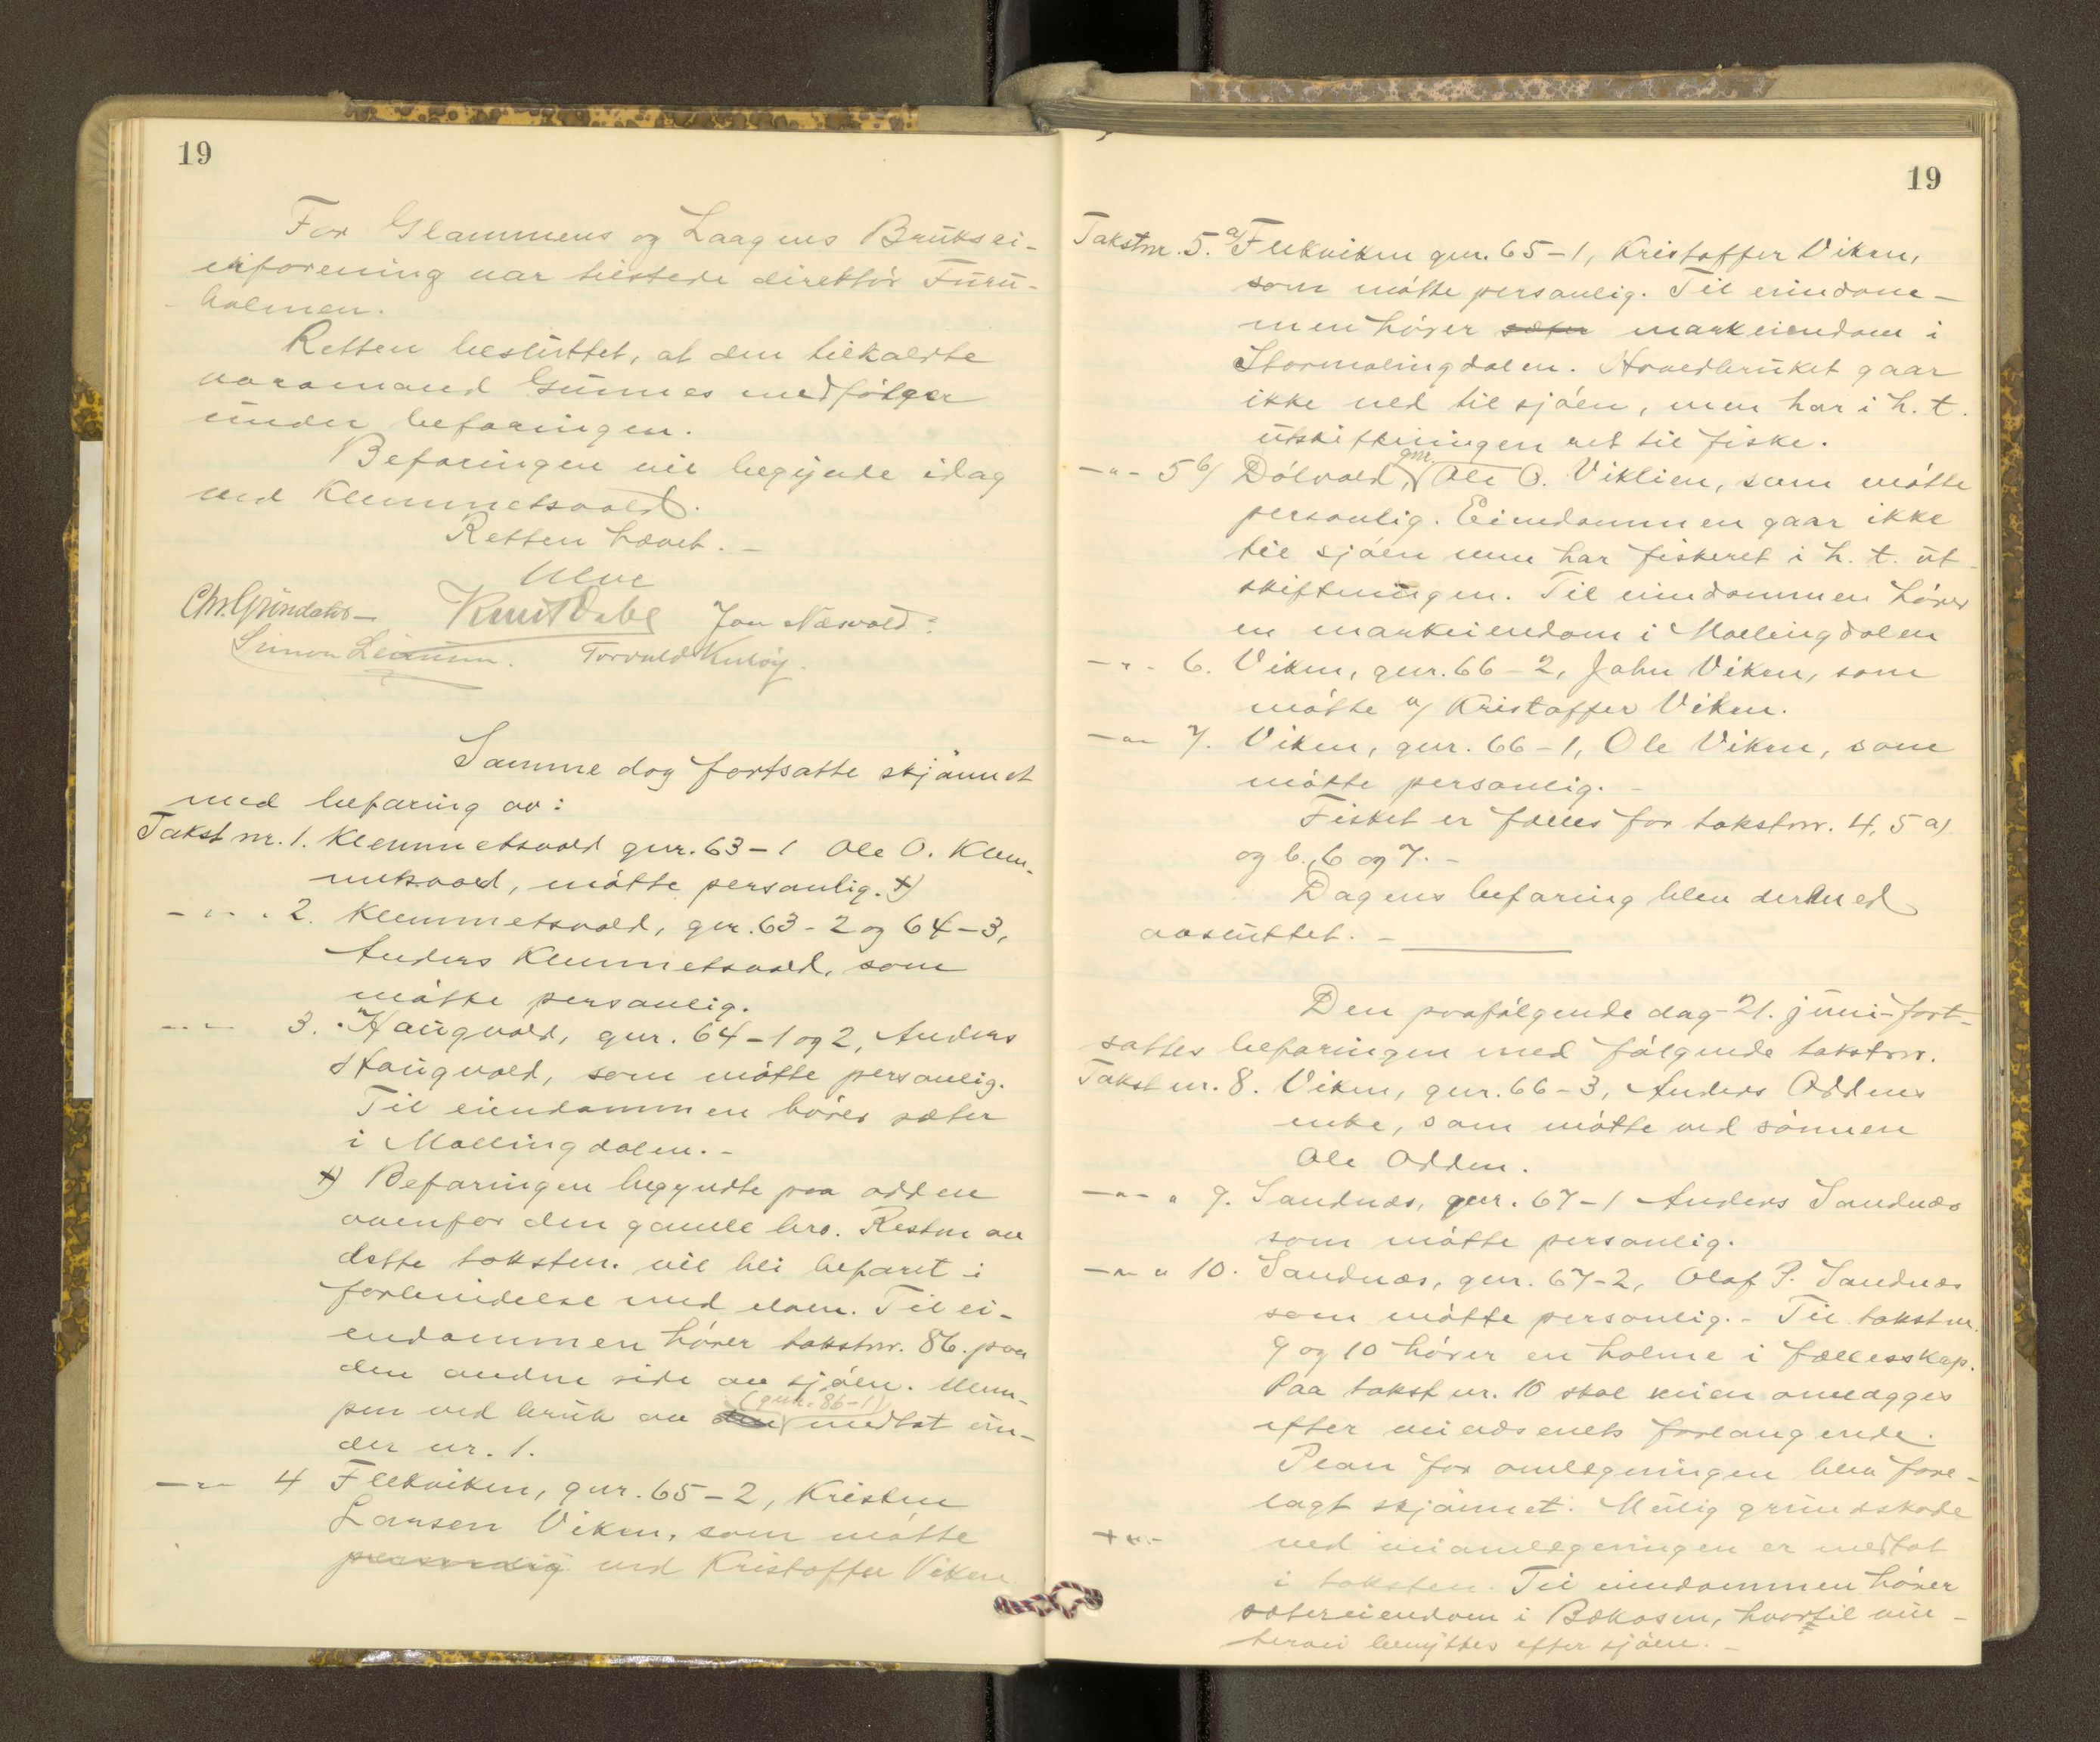 19
For Glammens og Laagens Bruksei-
erforening var tilstede direktör Furu-
holmen.
Retten besluttet, at den tilkaldte
varamand Gunnes medfölger
under befaringen.
Befaringen vil begynde idag
ved Klemmetsvold.
Retten hævet. –
Chr. Grundetjø– Knut Dahl Jon Næsvold.
Simon Leirmm. Torvald Kuløy.
Samme dag fortsatte skjönnet
med befaring av:
Takst nr. 1. Klemmetsvold gnr. 63-1 Ole O. Klem-
metsvold, mötte personlig. +)
– " – . 2. Klemmetsvold, gnr. 63-2 og 64-3,
Anders Klemmetsvold, som
mötte personlig.
– " – 3. Haugvold, gnr. 64-1 og 2, Anders
Haugvold, som mötte personlig.
Til eiendommen hörer sæter
i Mallingdalen. –
+) Befaringen begyndte paa odden
ovenfor den gamle bro. Resten av
dette takstnr. vil bli befaret i
forbindelse med elven. Til ei-
endommen hörer takstnr. 86. paa
den anden side av sjöen. Ulem-
pen ved bruk av den (gnr. 86-1) medtat un-
der nr. 1.
– " – 4 Flekviken, gnr. 65-2, Kristen
Larsen Viken, som mötte
personlig ved Kristoffer Viken
19
Takstnr. 5. a) Flekviken gnr. 65-1, Kristoffer Viken,
som mötte personlig. Til eiendom-
men hörer sæter markeiendom i
Stormalingdalen. Hovedbruket gaar
ikke ned til sjöen, men har i h. t.
utskiftningen ret til fiske.
– " – 5 b) Dölvold, gnr. Ole O. Viklien, som mötte
personlig. Eiendommen gaar ikke
til sjöen men har fiskeret i h. t. ut-
skiftningen. Til eiendommen hörer
en markeiendom i Mallingdalen
– " – 6. Viken, gnr. 66-2, John Viken, som
mötte v/ Kristoffer Viken.
– " – 7. Viken, gnr. 66-1, Ole Viken, som
mötte personlig. –
Fisket er fælles for takstnr. 4, 5 a)
og b., 6 og 7. –
Dagens befaring blev dermed
avsluttet. –
Den paafölgende dag - 21. juni - fort-
sattes befaringen med fölgende takstnr.
Takst nr. 8. Viken, gnr. 66-3, Anders Oddens
enke, som mötte ved sönnen
Ole Odden.
– " – " 9. Sandnæs, gnr. 67-1 Anders Sandnæs
som mötte personlig.
– " – " 10. Sandnæs, gnr. 67-2, Olaf P. Sandnæs
som mötte personlig. – Til takstnr.
9 og 10 hörer en holme i fællesskap.
Paa takst nr. 10 skal veien omlægges
efter veivæsenets forlangende.
Plan for omlægningen blev fore-
lagt skjönnet. Mulig grundskade
+ " – ved veiomlægningen er medtat
i taksten. Til eiendommen hörer
sætereiendom i Bækosen, hvortil vin-
tervei benyttes efter sjöen. –